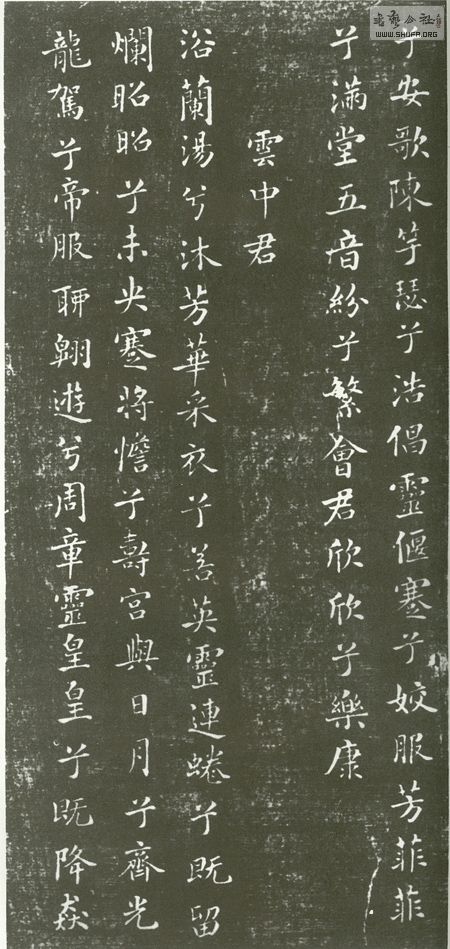 兮安歌陳竽瑟兮浩倡靈偃蹇兮姣服芳菲菲
兮滿堂五音紛兮繁會君欣欣兮樂康
雲中君
浴蘭湯兮沐芳華采衣兮若英靈連蜷兮既留
爛昭昭兮未央蹇將憺兮壽宮與日月兮齊光
龍駕兮帝服聊翱遊兮周章靈皇皇兮既降猋
书艺公社
WWW.SHUFA.ORG